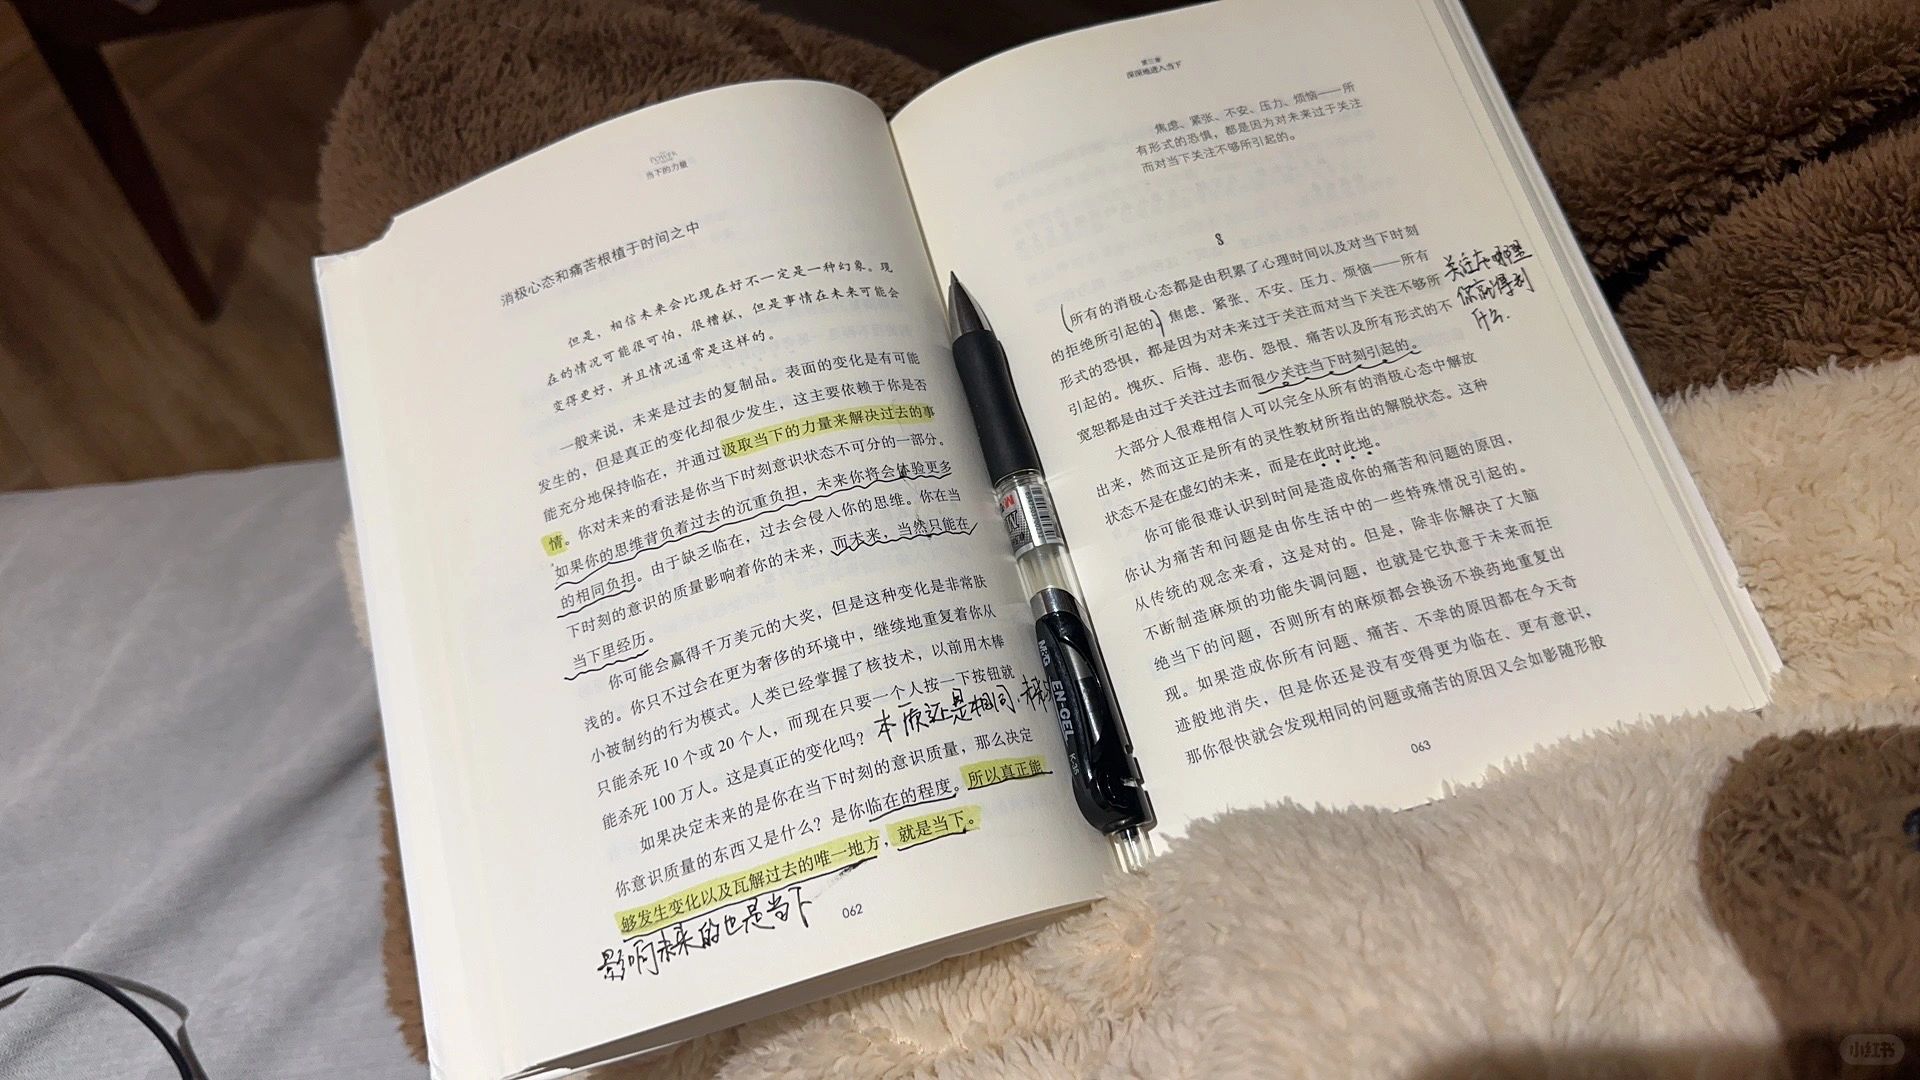 POWER
当下的力量
消极心态和痛苦根植于时间之中
但是，相信未来会比现在好不一定是一种幻象。现
在的情况可能很可怕，很糟糕，但是事情在未来可能会
变得更好，并且情况通常是这样的。
一般来说，未来是过去的复制品。表面的变化是有可能
发生的，但是真正的变化却很少发生，这主要依赖于你是否
能充分地保持临在，并通过汲取当下的力量来解决过去的事
情。你对未来的看法是你当下时刻意识状态不可分的一部分。
如果你的思维背负着过去的沉重负担，未来你将会体验更多
的相同负担。由于缺乏临在，过去会侵入你的思维。你在当
下时刻的意识的质量影响着你的未来，而未来，当然只能在
当下里经历。
你可能会赢得千万美元的大奖，但是这种变化是非常肤
浅的。你只不过会在更为奢侈的环境中，继续地重复着你从
小被制约的行为模式。人类已经掌握了核技术，以前用木棒
只能杀死 10 个或 20 个人，而现在只要一个人按一下按钮就
能杀死 100 万人。这是真正的变化吗？
本质还是相同
如果决定未来的是你在当下时刻的意识质量，那么决定
你意识质量的东西又是什么？是你临在的程度。所以真正能
够发生变化以及瓦解过去的唯一地方，就是当下。
影响未来的也是当下
062
第三章
深深地进入当下
焦虑、紧张、不安、压力、烦恼——所
有形式的恐惧，都是因为对未来过于关注
而对当下关注不够所引起的。
8
（所有的消极心态都是由积累了心理时间以及对当下时刻
的拒绝所引起的。）焦虑、紧张、不安、压力、烦恼——所有
形式的恐惧，都是因为对未来过于关注而对当下关注不够所
引起的。愧疚、后悔、悲伤、怨恨、痛苦以及所有形式的不
宽恕都是由过于关注过去而很少关注当下时刻引起的。
关注在哪里
你就得到
什么.
大部分人很难相信人可以完全从所有的消极心态中解放
出来，然而这正是所有的灵性教材所指出的解脱状态。这种
状态不是在虚幻的未来，而是在此时此地。
你可能很难认识到时间是造成你的痛苦和问题的原因，
你认为痛苦和问题是由你生活中的一些特殊情况引起的。
从传统的观念来看，这是对的。但是，除非你解决了大脑
不断制造麻烦的功能失调问题，也就是它执意于未来而拒
绝当下的问题，否则所有的麻烦都会换汤不换药地重复出
现。如果造成你所有问题、痛苦、不幸的原因都在今天奇
迹般地消失，但是你还是没有变得更为临在、更有意识，
那你很快就会发现相同的问题或痛苦的原因又会如影随形般
063
M&G
EN-GEL
K-35
小红书